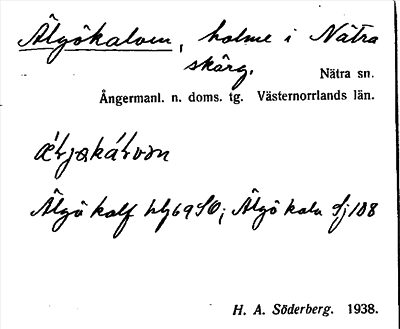 Älgökalven, holme i Nätra
skärg.
Nätra sn.
Ångermanl. n. doms. tg. Västernorrlands län.
Älgö kalf 69 SO; Älgö kalv Sj 108
H. A. Söderberg. 1938.